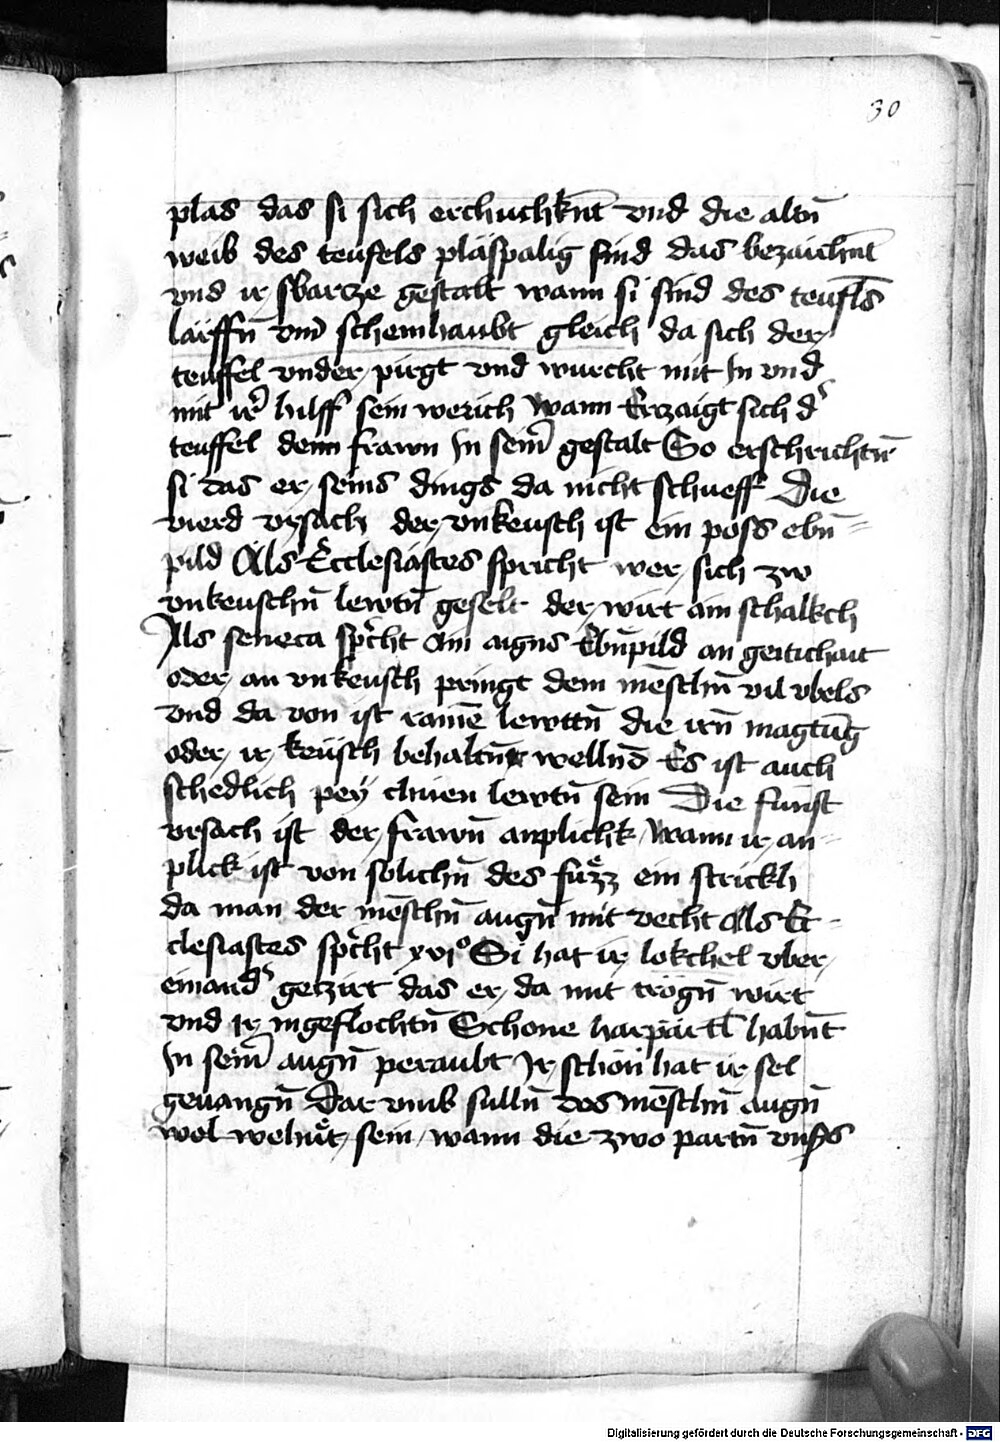 30
plas das si sich erchuchkñt vnd die altñ
weib des teufels pläspalig sind das bezaichñt
vnd ir sbarcze gestalt wann si sind des teufl̄s
laiffñ vm̄ schemhaubt gleich da sich der
teuffel vnder pirgt vnd wurcht mit In vnd
mit ir̄ hilff sein werich wann Erczaigt sich d'
teuffel denn frawn In seim̄ gestalt So erschrichtñ
si das er seins dings da nicht schueff Die
vierd vrsach der vnkeusch ist ein poss ebñ=
pild Als Ecclesiastes spricht wer sich zw
vnkeuschñ lewtñ geselt der wirt ain schalkch
Als seneca sp̄cht Ain aigns Ebñpild an geitichait
oder an vnkeusch pringt dem mēschñ vil vbels
vnd da von ist rainē lewttñ die irñ magtūg
oder ir keüsch behaltñ wellnd Es ist auch
schedlich pey chnen lewtñ sein Die funft
vrsach ist der frawñ anplickt Wann ir an=
plick ist von solichñ des fuͤzz ein strickh
da man der mēschñ augñ mit vecht Als Ec=
clesiastes sp̄cht xviͦ Si hat ir lokchel vber
einand' geczirt das er da mit trögñ wirt
vnd Ir ingeflochtñ Schone harpärtl habñt
In seim̄ augñ peraubt Ir schön hat ir sel
geuangñ Dar vmb sullñ des mēschñ augñ
wol weluͤt sein wann die zwo partñ vnss
Digitalisierung gefördert durch die Deutsche Forschungsgemeinschaft - DFG